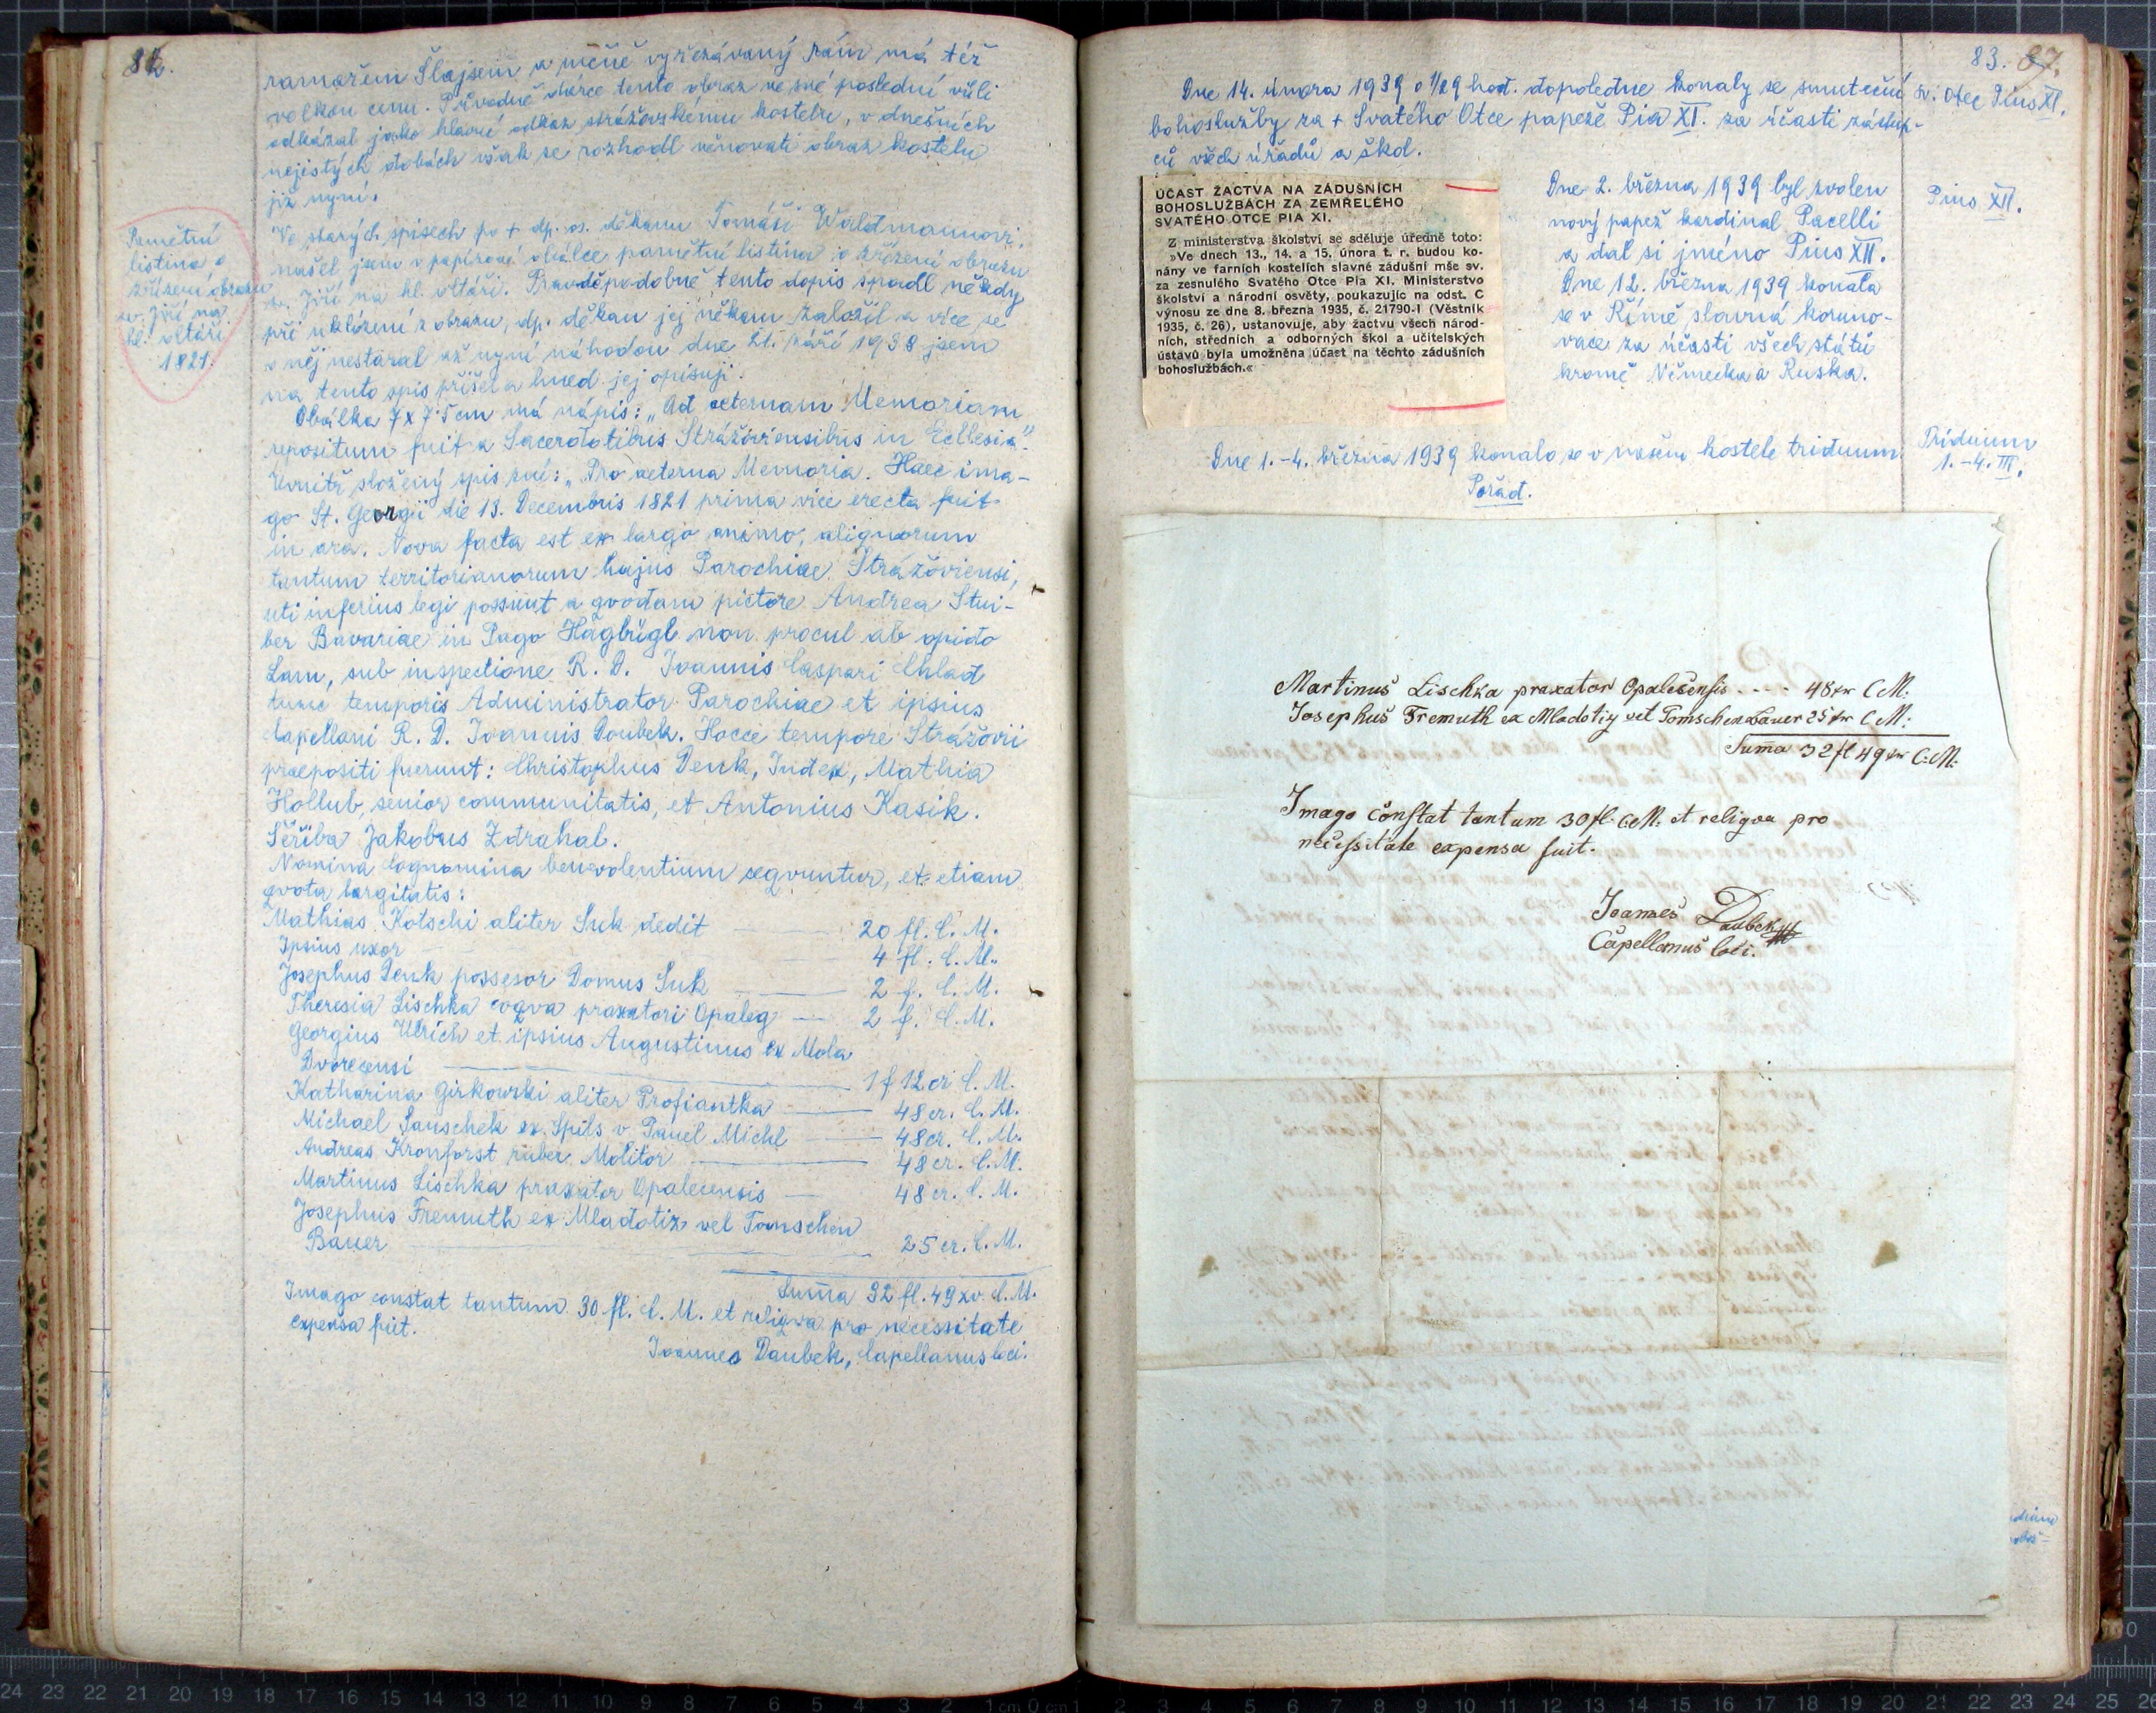 82.
rámařem Šlajsem a měně vyřezávaný rám má též
velkou cenu. Původně dárce tento obraz ve své poslední vůli
odkázal jako hlavní odkaz strážovskému kostelu, v dnešních
nejistých dobách však se rozhodl věnovati obraz kostelu
již nyní.
Pamětní
listina o
zřízení obrazu
sv. Jiří na
hl. oltáři
1821.
Ve starých spisech po + dp. os. děkanu Tomáši Waldmannovi,
našel jsem v papírové obálce pamětní listinu o zřízení obrazu
sv. Jiří na hl. oltáři. Pravděpodobně tento dopis spadl někdy
při uklízení z obrazu, dp. děkan jej někam založil a více se
o něj nestaral až nyní náhodou dne 21. září 1938 jsem
na tento spis přišel a hned jej opisuji.
Obálka 7x7·5cm má nápis: „Ad aeternam Memoriam
repositum fuit a Sacerdotibus Strážoviensibus in Ecclesia"
Uvnitř složený spis zní: „Pro aeterna Memoria. Haec ima-
go St. Georgii die 13. Decembris 1821 prima vice erecta fuit
in ara. Nova facta est ex largo animo, aliquorum
tantum territorianorum hujus Parochiae Strážoviensi,
uti inferius legi possunt a qvodam pictore Andrea Stui-
ber Bavariae in Pago Hägbügl non procul ab opido
Lam, sub inspectione R. D. Joannis Caspari Chlad
tunc temporis Administrator Parochiae et ipsius
Capellani R. D. Joannis Doubek. Hocce tempore Strážovii
praepositi fuerunt: Christophus Denk, Judex, Mathia
Hollub, senior communitatis, et Antonius Kasik.
Scriba Jakobus Zdrahal.
Nomina cognomina benevolentium seqvuntur, et etiam
qvota largitatis:
Mathias Kotschi aliter Suk dedit — 20 fl. C. M.
Ipsius uxor — 4 fl. C. M.
Josephus Denk possesor Domus Suk — 2 f. C. M.
Theresia Lischka coqva praxatori Opaleg — 2 f. C. M.
Georgius Ulrich et ipsius Augustinus ex Mola
Dvorecensi — 1 f 12 cr C. M.
Katharina Girkowski aliter Profiantka — 48 cr. C. M.
Michael Jauschek ex Spils v. Pauel Michl — 48 cr. C. M.
Andreas Kronforst ruber Molitor — 48 cr. C. M.
Martinus Lischka praxator Opalecensis — 48 cr. C. M.
Josephus Fremuth ex Mladotiz vel Tomschen
Bauer — 25 cr. C. M.
Suma 32 fl. 49 xv. C. M.
Imago constat tantum 30 fl. C. M. et reliqva pro necessitate
expensa fuit.
Joannes Daubek, Capellanus loci.
83. 87.
Dne 14. února 1939 o 1/29 hod. dopoledne konaly se smuteční
bohoslužby za + Svatého Otce papeže Pia XI. za účasti zástup-
ců všech úřadů a škol.
sv. Otec Pius XI.
ÚČAST ŽACTVA NA ZÁDUŠNÍCH
BOHOSLUŽBÁCH ZA ZEMŘELÉHO
SVATÉHO OTCE PIA XI.
Z ministerstva školství se sděluje úředně toto:
»Ve dnech 13., 14. a 15. února t. r. budou ko-
nány ve farních kostelích slavné zádušní mše sv.
za zesnulého Svatého Otce Pia XI. Ministerstvo
školství a národní osvěty, poukazujíc na odst. C
výnosu ze dne 8. března 1935, č. 21790-I (Věstník
1935, č. 26), ustanovuje, aby žactvu všech národ-
ních, středních a odborných škol a učitelských
ústavů byla umožněna účast na těchto zádušních
bohoslužbách.«
Dne 2. března 1939 byl zvolen
nový papež kardinál Pacelli
a dal si jméno Pius XII.
Dne 12. března 1939 konala
se v Římě slavná koruno-
vace za účasti všech států
kromě Německa a Ruska.
Pius XII.
Dne 1.-4. března 1939 konalo se v našem kostele triduum
Pořad.
Triduum
1.-4. III.
Martinus Lischka praxator Opalecensis . . . . 48 xr C M:
Josephus Fremuth ex Mladotiz vel Tomschen Bauer 25 xr C M:
Suma 32 fl 49 xr C. M.
Imago constat tantum 30 fl. C. M. et reliqva pro
necessitate expensa fuit.
Joannes Daubek
Capellanus loci.